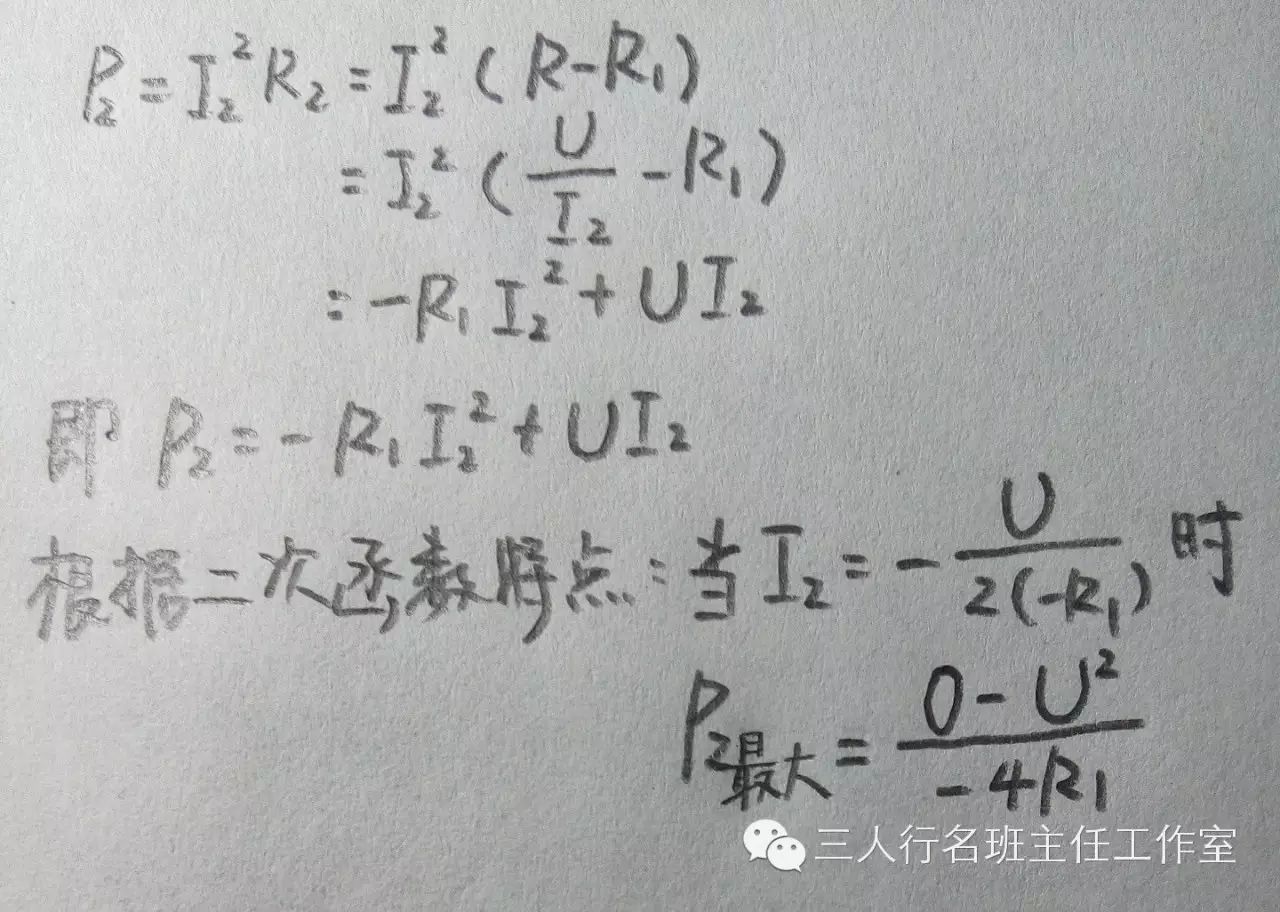 P₂=I₂²R₂=I₂²(R-R₁)
=I₂²(U/I₂-R₁)
=-R₁I₂²+UI₂
即 P₂=-R₁I₂²+UI₂
根据二次函数特点:当I₂=-U/2(-R₁)时
P₂最大=0-U²/-4R₁
三人行名班主任工作室